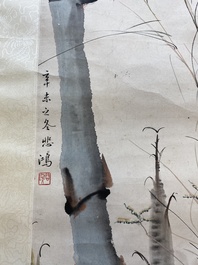 辛未之冬悲鴻